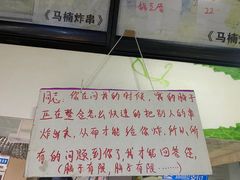 《马楠炸串》
《马楠炸串》
22
同志,你在问我的时候,我的脑子
正在整合怎么快速的把别人的串
炸出来,从而才能给你炸,所以,所
有的问题,到你了,我才能回答您,
(脑子有限,脑子有限……)